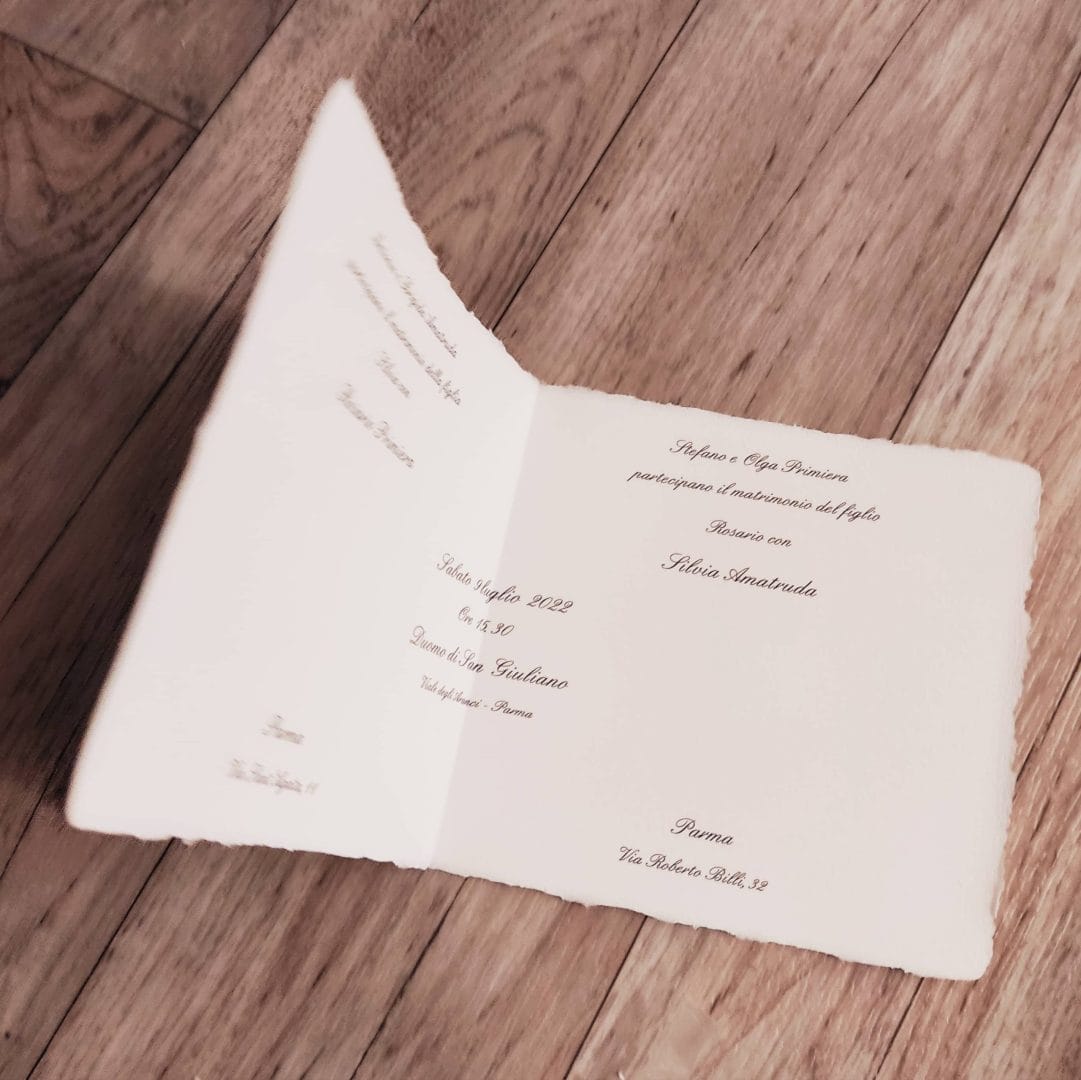 Amatruda
il matrimonio della figlia
Primiera
Parma
Sabato 9 luglio 2022
Ore 15,30
Duomo di San Giuliano
Viale degli Aranci - Parma
Stefano e Olga Primiera
partecipano il matrimonio del figlio
Rosario con
Silvia Amatruda
Parma
Via Roberto Billi, 32